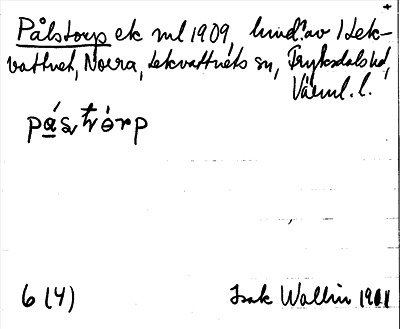 Pålstorp ek ml 1909, hmd. av 1 Lek-
vattnet, Norra, Lekvattnets sn, Fryksdals hd,
Värml. l.
pástórp
6 (4) Isak Wallin 1911